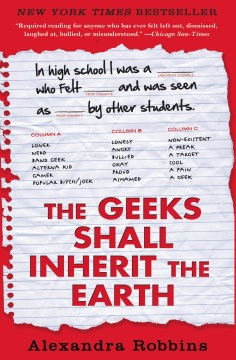 NEW YORK TIMES BESTSELLER
"Required reading for anyone who has ever felt left out, dismissed,
laughed at, bullied, or misunderstood." —Chicago Sun-Times
In high school I was a
who felt and was seen
as by other students.
COLUMN A COLUMN B COLUMN C
LONER LONELY NON-EXISTENT
NERD ANGRY A FREAK
BAND GEEK BULLIED A TARGET
ALTERNA KID OKAY COOL
GAMER PROUD A PAIN
POPULAR BITCH/JOCK ASHAMED A GEEK
THE GEEKS
SHALL
INHERIT THE
EARTH
Alexandra Robbins